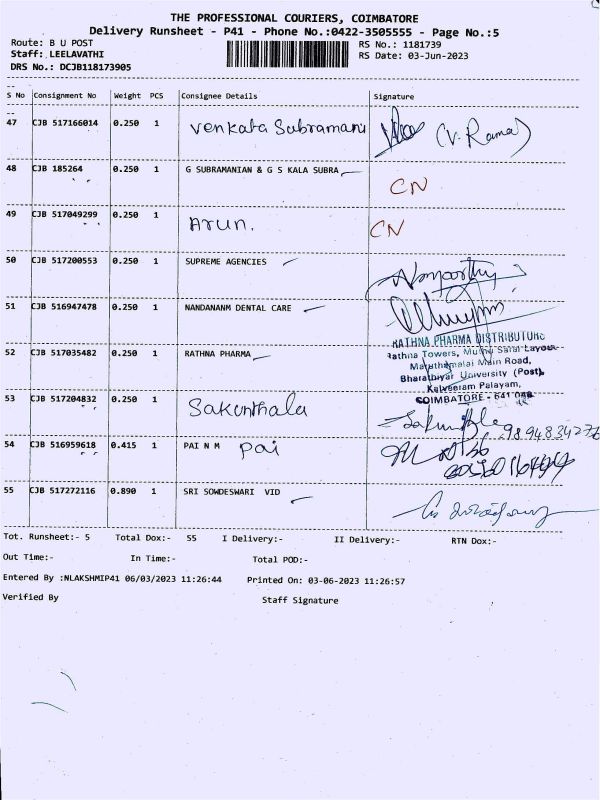 THE PROFESSIONAL COURIERS, COIMBATORE
Delivery Runsheet - P41 - Phone No.:0422-3505555 - Page No.:5
Route: B U POST RS No.: 1181739
Staff: LEELAVATHI RS Date: 03-Jun-2023
DRS No.: DCJB118173905
S No Consignment No Weight PCS Consignee Details Signature
47 CJB 517166014 0.250 1 Venkata Subramani (V. Rama)
48 CJB 185264 0.250 1 G SUBRAMANIAN & G S KALA SUBRA CN
49 CJB 517049299 0.250 1 Arun. CN
50 CJB 517200553 0.250 1 SUPREME AGENCIES
51 CJB 516947478 0.250 1 NANDANANM DENTAL CARE
RATHNA PHARMA DISTRIBUTORS
Rathna Towers, Muthu Sarai Layout
52 CJB 517035482 0.250 1 RATHNA PHARMA
Maruthamalai Main Road,
Bharathiyar University (Post),
Kalveeram Palayam,
COIMBATORE - 641 046
53 CJB 517204832 0.250 1 Sakunthala
54 CJB 516959618 0.415 1 PAI N M Pai
55 CJB 517272116 0.890 1 SRI SOWDESWARI VID
Tot. Runsheet:- 5 Total Dox:- 55 I Delivery:- II Delivery:- RTN Dox:-
Out Time:- In Time:- Total POD:-
Entered By :NLAKSHMIP41 06/03/2023 11:26:44 Printed On: 03-06-2023 11:26:57
Verified By Staff Signature